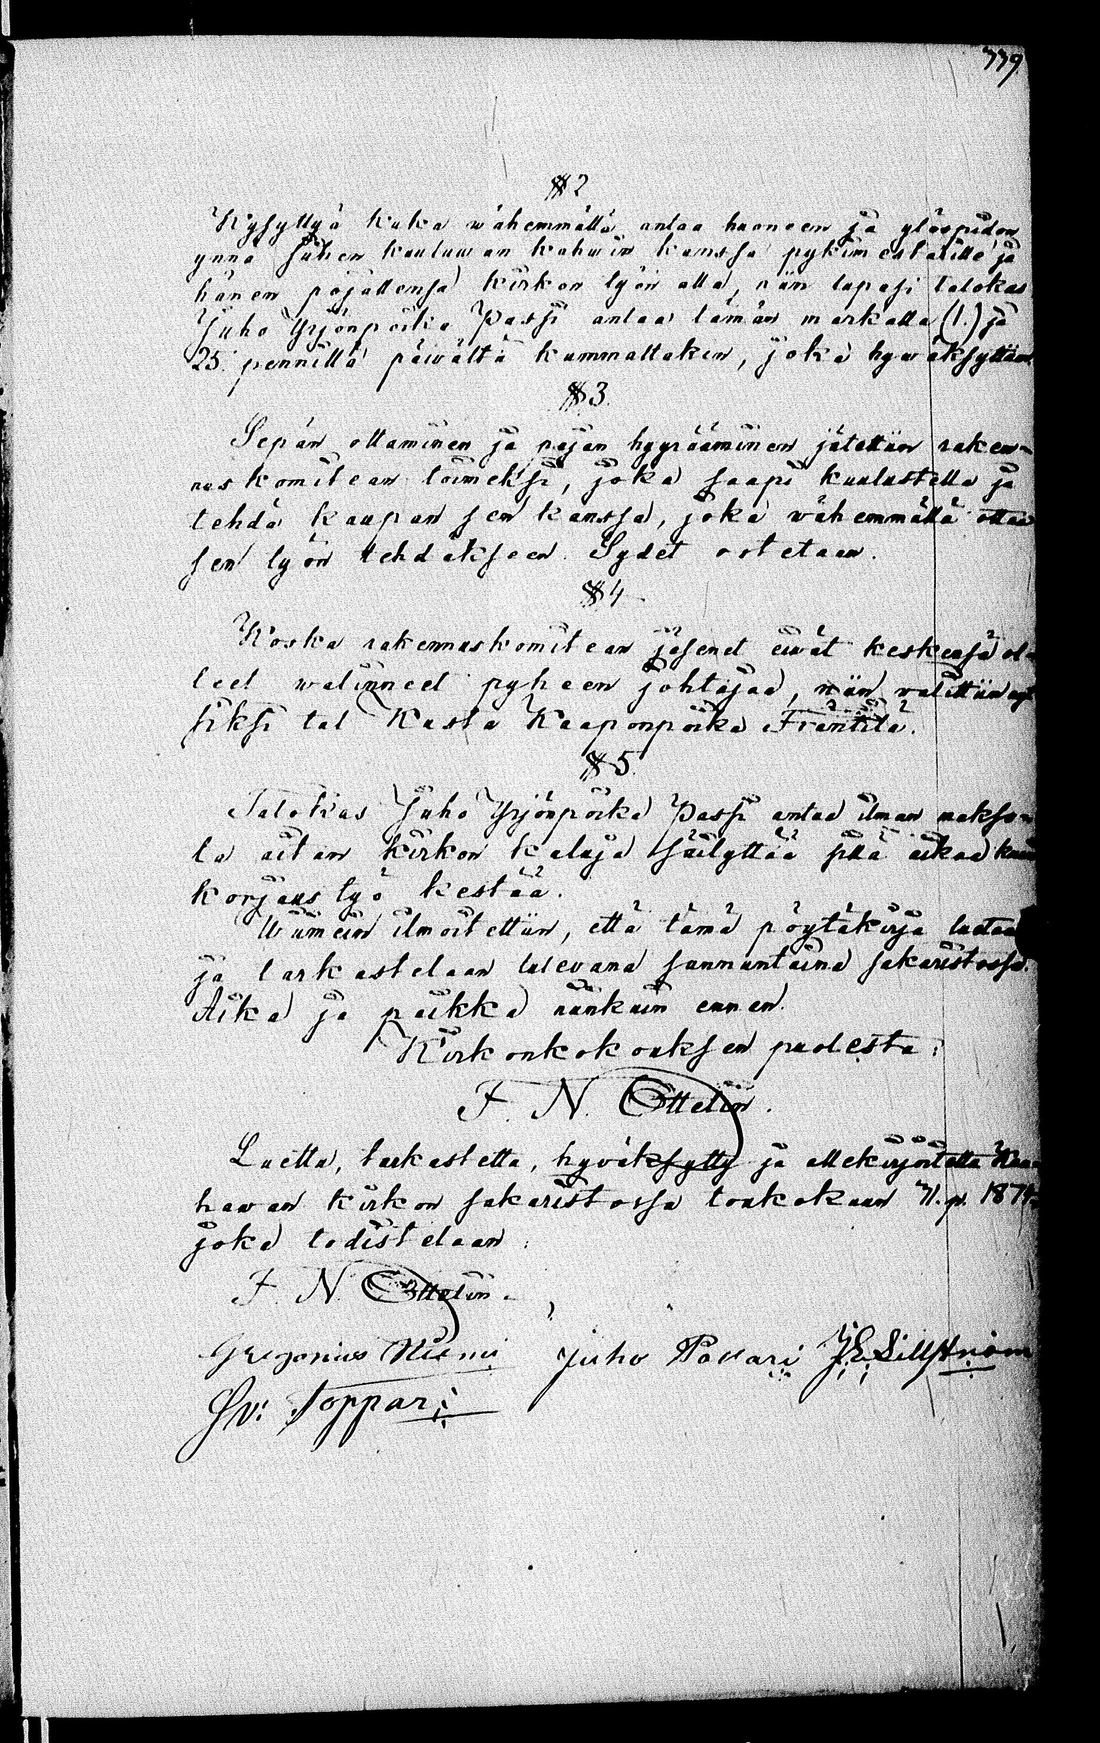 339
§ 2
Kysyttyä kuka wähemmällä antaa huoneen ja ylöspidon
ynnä siihen kuuluwan kahwin kanssa pykimestarille ja
hänen pojallensa kirkon työn alla, niin lupasi talokas
Juho Yrjönpoika Passi antaa tämän markalla (1.) ja
25. pennillä päiwältä kummaltakin, joka hywäksyttiin.
§ 3.
Sepän ottaminen ja pajan hyyrääminen jätettiin raken-
nuskomitean toimeksi, joka saapi kuulustella ja
tehdä kaupan sen kanssa, joka wähemmällä ottaa
sen työn tehdäkseen. Sydet ostetaan.
§ 4
Koska rakennuskomitean jäsenet eiwät keskensä ol
leet walinneet pyheen johtajaa, niin walittiin
siksi tal Kusta Kaaponpoika Fräntilä.
§ 5.
Talokas Juho Yrjönpoika Passi antaa ilman maksu-
ta aitan kirkon kaluja säilyttää sillä aikaa kuin
korjaus työ kestää.
Wiimein ilmoitettiin, että tämä pöytäkirja luetaan
ja tarkastetaan tulevana sunnuntaina sakaristossa.
Aika ja paikka niinkuin ennen.
Kirkonkokouksen puolesta:
F. N. Ottelin.
Luettu, tarkastettu, hyväksytty ja allekirjoitettu Kau-
hawan kirkon sakaristossa toukokuun 31. p. 187
joka todistetaan:
F. N. Ottelin.
Gregorius Niemi Juho Pouari J E Lillström
Hv: Toppari